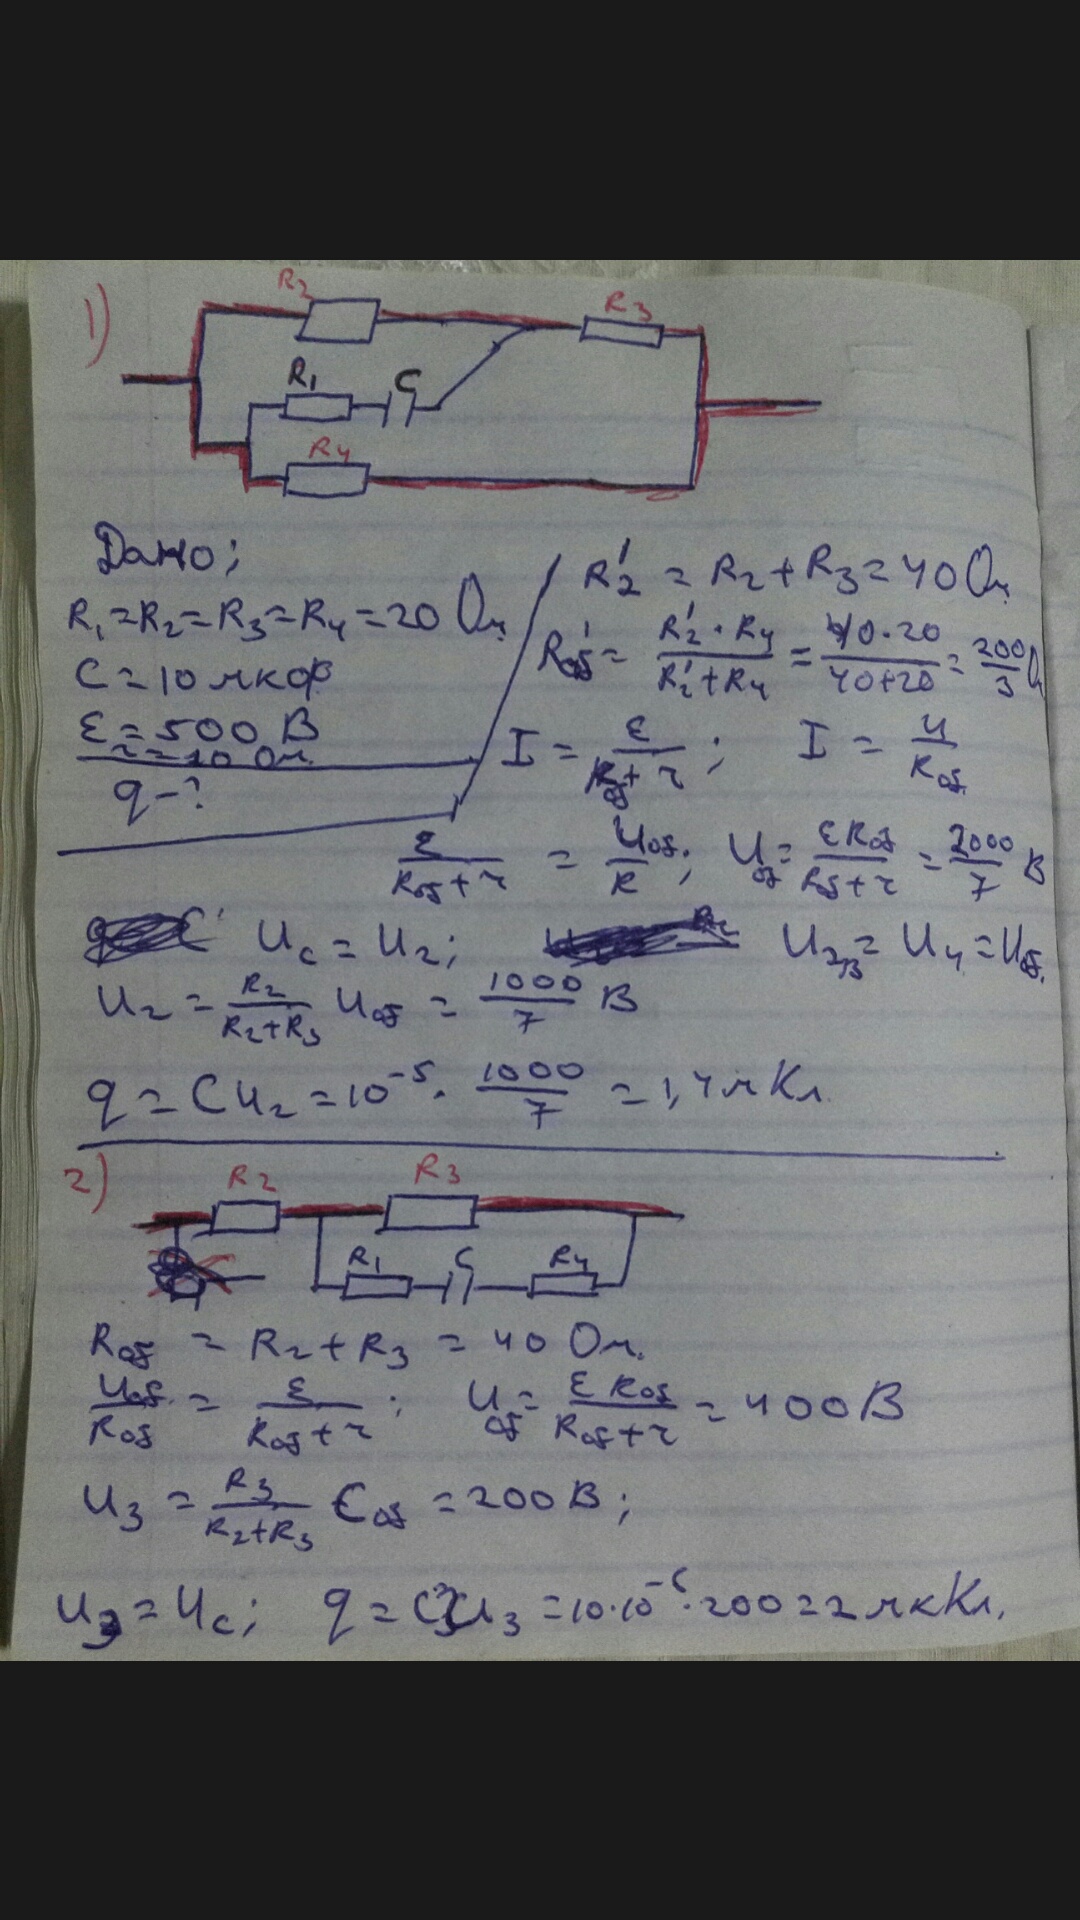 1)
R2 R3
R1 C
R4
Дано;
R₁=R₂=R₃=R₄=20 Ом
C=10 мкФ
ε=500 В
r=10 Ом.
q-?
R₂' = R₂+R₃=40 Ом
Rоб' = R₂'·R₄ / R₂'+R₄ = 40·20 / 40+20 = 200/3 Ом
I = ε / Rоб+r ; I = U / Rоб
ε / Rоб+r = Uоб / R ; Uоб = εRоб / Rоб+r = 2000/7 В
Uc = U₂; U₂₃ = U₄ = Uоб.
U₂ = R₂ / R₂+R₃ Uоб = 1000/7 В
q = CU₂ = 10⁻⁵ · 1000/7 = 1,4 мКл
2)
R2 R3
R1 C R4
Rоб = R₂+R₃ = 40 Ом.
Uоб / Rоб = ε / Rоб+r ; Uоб = εRоб / Rоб+r = 400 В
U₃ = R₃ / R₂+R₃ Eоб = 200 В;
U₃ = Uc; q = CU₃ = 10·10⁻⁶·200=2 мкКл.